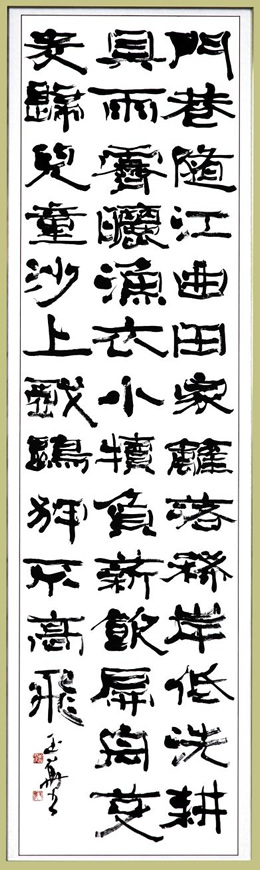 門巷隨江曲田家籬落稀岸低洗耕
具雨霽曬漁衣小犢負薪飲
麦歸兒童沙上戱鷗狎不高飛
玉華